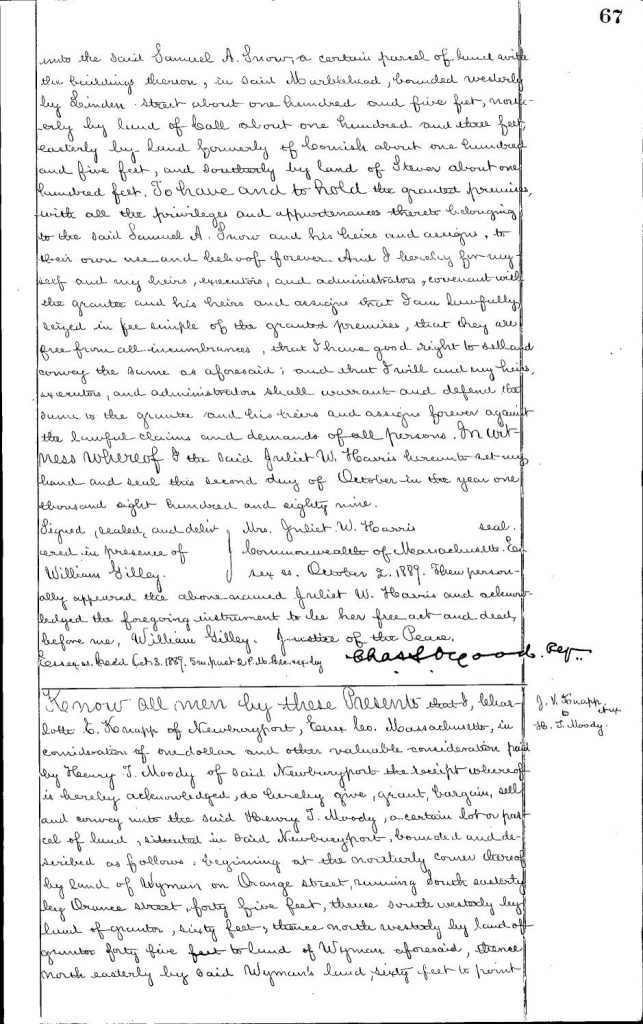 67
unto the said Samuel A. Snow, a certain parcel of land with
the buildings thereon, in said Marblehead, bounded westerly
by Linden street about one hundred and five feet, north-
erly by land of Call about one hundred and three feet,
easterly by land formerly of Cornish about one hundred
and five feet, and southerly by land of Stever about one
hundred feet. To have and to hold the granted premises,
with all the privileges and appurtenances thereto belonging
to the said Samuel A. Snow and his heirs and assigns, to
their own use and behoof forever. And I hereby for my-
self and my heirs, executors, and administrators, covenant with
the grantee and his heirs and assigns that I am lawfully
seized in fee simple of the granted premises, that they are
free from all incumbrances, that I have good right to sell and
convey the same as aforesaid; and that I will and my heirs,
executors, and administrators shall warrant and defend the
same to the grantee and his heirs and assigns forever against
the lawful claims and demands of all persons. In wit-
ness whereof I the said Juliet W. Harris hereunto set my
hand and seal this second day of October in the year one
thousand eight hundred and eighty nine.
Signed, sealed, and deliv } Mrs. Juliet W. Harris seal.
ered in presence of } Commonwealth of Massachusetts. Es-
William Gilley. } sex ss. October 2. 1889. Then person-
ally appeared the above named Juliet W. Harris and acknow-
ledged the foregoing instrument to be her free act and deed,
before me, William Gilley. Justice of the Peace.
Essex ss. Recd Oct. 3. 1889. 5 m. past 2 P.M. Rec. & ex. by Chas. S. Osgood. Reg.
Know all men by these Presents that I, Char-
lotte E. Knapp of Newburyport, Essex Co. Massachusetts, in
consideration of one dollar and other valuable consideration paid
by Henry T. Moody of said Newburyport the receipt whereof
is hereby acknowledged, do hereby give, grant, bargain, sell
and convey unto the said Henry T. Moody, a certain lot or par
cel of land, situated in said Newburyport, bounded and de-
scribed as follows: beginning at the northerly corner thereof
by land of Wyman on Orange street, running South easterly
by Orange street, forty five feet, thence south westerly by
land of grantor, sixty feet, thence north westerly by land of
grantor forty five feet to land of Wyman aforesaid, thence
north easterly by said Wyman's land, sixty feet to point
Knapp,
to
H. T. Moody.